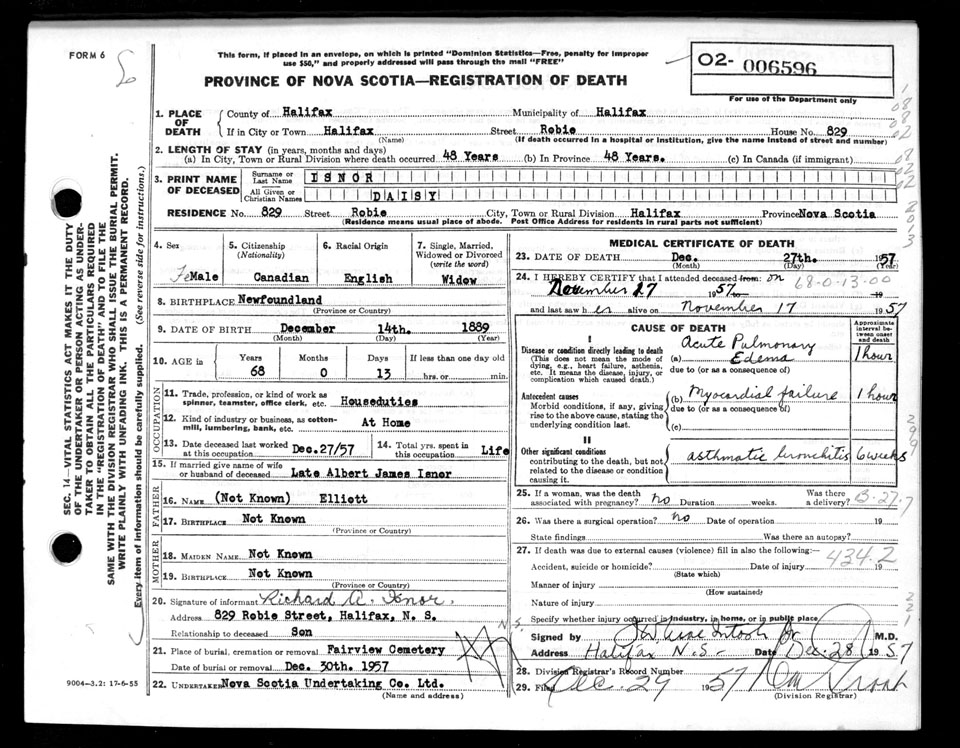 FORM 6
This form, if placed in an envelope, on which is printed "Dominion Statistics—Free, penalty for improper
use $50," and properly addressed will pass through the mail "FREE"
PROVINCE OF NOVA SCOTIA—REGISTRATION OF DEATH
02- 006596
For use of the Department only
1. PLACE OF DEATH
County of Halifax Municipality of Halifax
If in City or Town Halifax Street Robie House No. 829
(Name) (If death occurred in a hospital or institution, give the name instead of street and number)
2. LENGTH OF STAY (in years, months and days)
(a) In City, Town or Rural Division where death occurred 48 Years (b) In Province 48 Years. (c) In Canada (if immigrant)
3. PRINT NAME OF DECEASED
Surname or Last Name ISNOR
All Given or Christian Names DAISY
RESIDENCE No. 829 Street Robie City, Town or Rural Division Halifax Province Nova Scotia
(Residence means usual place of abode. Post Office Address for residents in rural parts not sufficient)
4. Sex
FeMale
5. Citizenship
(Nationality)
Canadian
6. Racial Origin
English
7. Single, Married,
Widowed or Divorced
(write the word)
Widow
8. BIRTHPLACE Newfoundland
(Province or Country)
9. DATE OF BIRTH December 14th. 1889
(Month) (Day) (Year)
10. AGE in Years Months Days If less than one day old
68 0 13 hrs. or min.
OCCUPATION
11. Trade, profession, or kind of work as
spinner, teamster, office clerk, etc. Houseduties
12. Kind of industry or business, as cotton-
mill, lumbering, bank, etc. At Home
13. Date deceased last worked
at this occupation Dec.27/57
14. Total yrs. spent in
this occupation Life
15. If married give name of wife
or husband of deceased Late Albert James Isnor
FATHER
16. NAME (Not Known) Elliott
17. BIRTHPLACE Not Known
(Province or Country)
MOTHER
18. MAIDEN NAME Not Known
19. BIRTHPLACE Not Known
(Province or Country)
20. Signature of informant Richard A. Isnor.
Address 829 Robie Street, Halifax, N. S.
Relationship to deceased Son
21. Place of burial, cremation or removal Fairview Cemetery
Date of burial or removal Dec. 30th. 1957
22. UNDERTAKER Nova Scotia Undertaking Co. Ltd.
(Name and address)
MEDICAL CERTIFICATE OF DEATH
23. DATE OF DEATH Dec. 27th. 1957
(Month) (Day) (Year)
24. I HEREBY CERTIFY that I attended deceased from: on
November 27 1957 to 19
68-0-13-00
and last saw her alive on November 17 1957
CAUSE OF DEATH
Approximate interval between onset and death
I
Disease or condition directly leading to death
(This does not mean the mode of
dying, e.g., heart failure, asthenia,
etc. It means the disease, injury, or
complication which caused death.)
(a) Acute Pulmonary Edema 1 hour
due to (or as a consequence of)
Antecedent causes
Morbid conditions, if any, giving
rise to the above cause, stating the
underlying condition last.
(b) Myocardial failure 1 hour
due to (or as a consequence of)
(c)
II
Other significant conditions
contributing to the death, but not
related to the disease or condition
causing it.
asthmatic bronchitis 6 weeks
25. If a woman, was the death
associated with pregnancy? no Duration weeks. Was there
a delivery? B-27.7
26. Was there a surgical operation? no Date of operation 19
State findings Was there an autopsy?
27. If death was due to external causes (violence) fill in also the following:—
434.2
Accident, suicide or homicide? Date of injury 19
(State which)
Manner of injury
(How sustained)
Nature of injury
Specify whether injury occurred in industry, in home, or in public place
Signed by M.D.
Address Halifax N.S- Date Dec. 28 1957
28. Division Registrar's Record Number
29. Filed Dec. 29 1957
(Division Registrar)
9004-3.2: 17-6-55
SEC. 14—VITAL STATISTICS ACT MAKES IT THE DUTY
OF THE UNDERTAKER OR PERSON ACTING AS UNDER-
TAKER TO OBTAIN ALL THE PARTICULARS REQUIRED
IN THE "REGISTRATION OF DEATH" AND TO FILE THE
SAME WITH THE DIVISION REGISTRAR WHO SHALL ISSUE THE BURIAL PERMIT.
WRITE PLAINLY WITH UNFADING INK. THIS IS A PERMANENT RECORD.
Every item of information should be carefully supplied. (See reverse side for instructions.)
N.S.